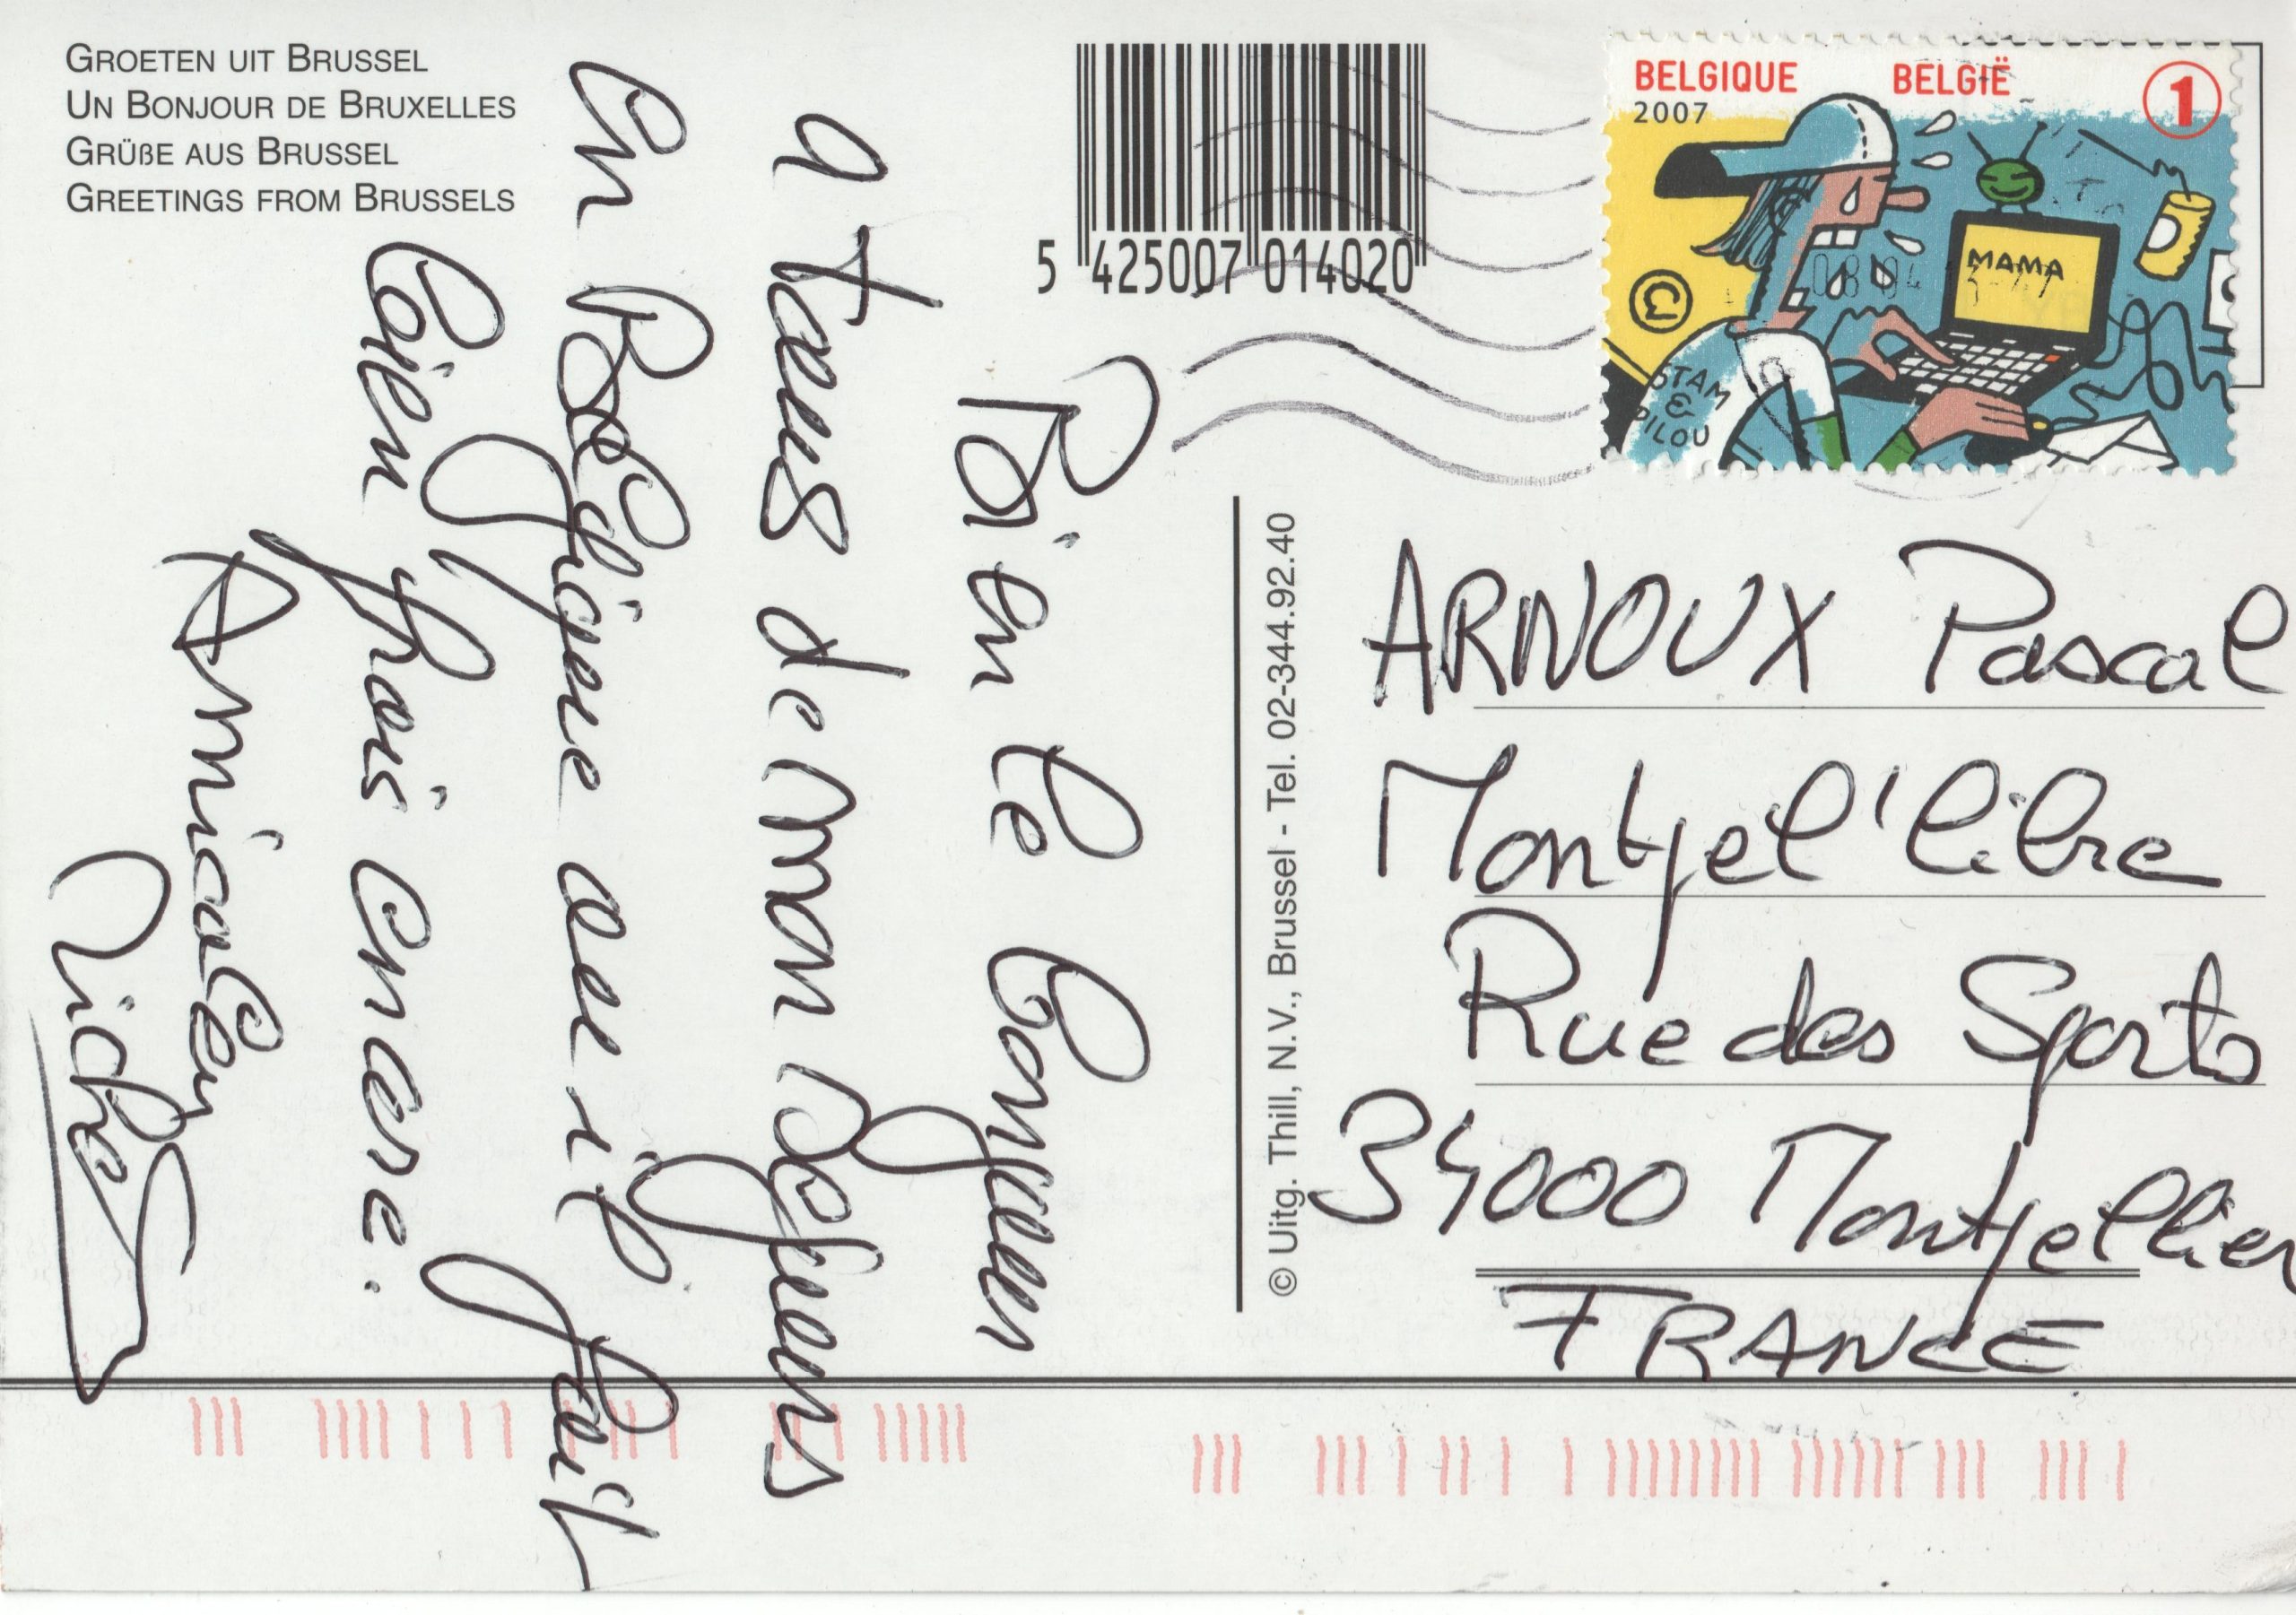 GROETEN UIT BRUSSEL
UN BONJOUR DE BRUXELLES
GRÜßE AUS BRUSSEL
GREETINGS FROM BRUSSELS
Bien le Bonjour
a tous de mon Sejours
en Belgique ou il fait
bien frais encore.
5 425007 014020
BELGIQUE BELGIË 1
2007
MAMA
STAM
&
PILOU
© Uitg. Thill, N.V., Brussel - Tel. 02-344.92.40
ARNOUX Pascal
Montpel'libre
Rue des Sports
34000 Montpellier
FRANCE